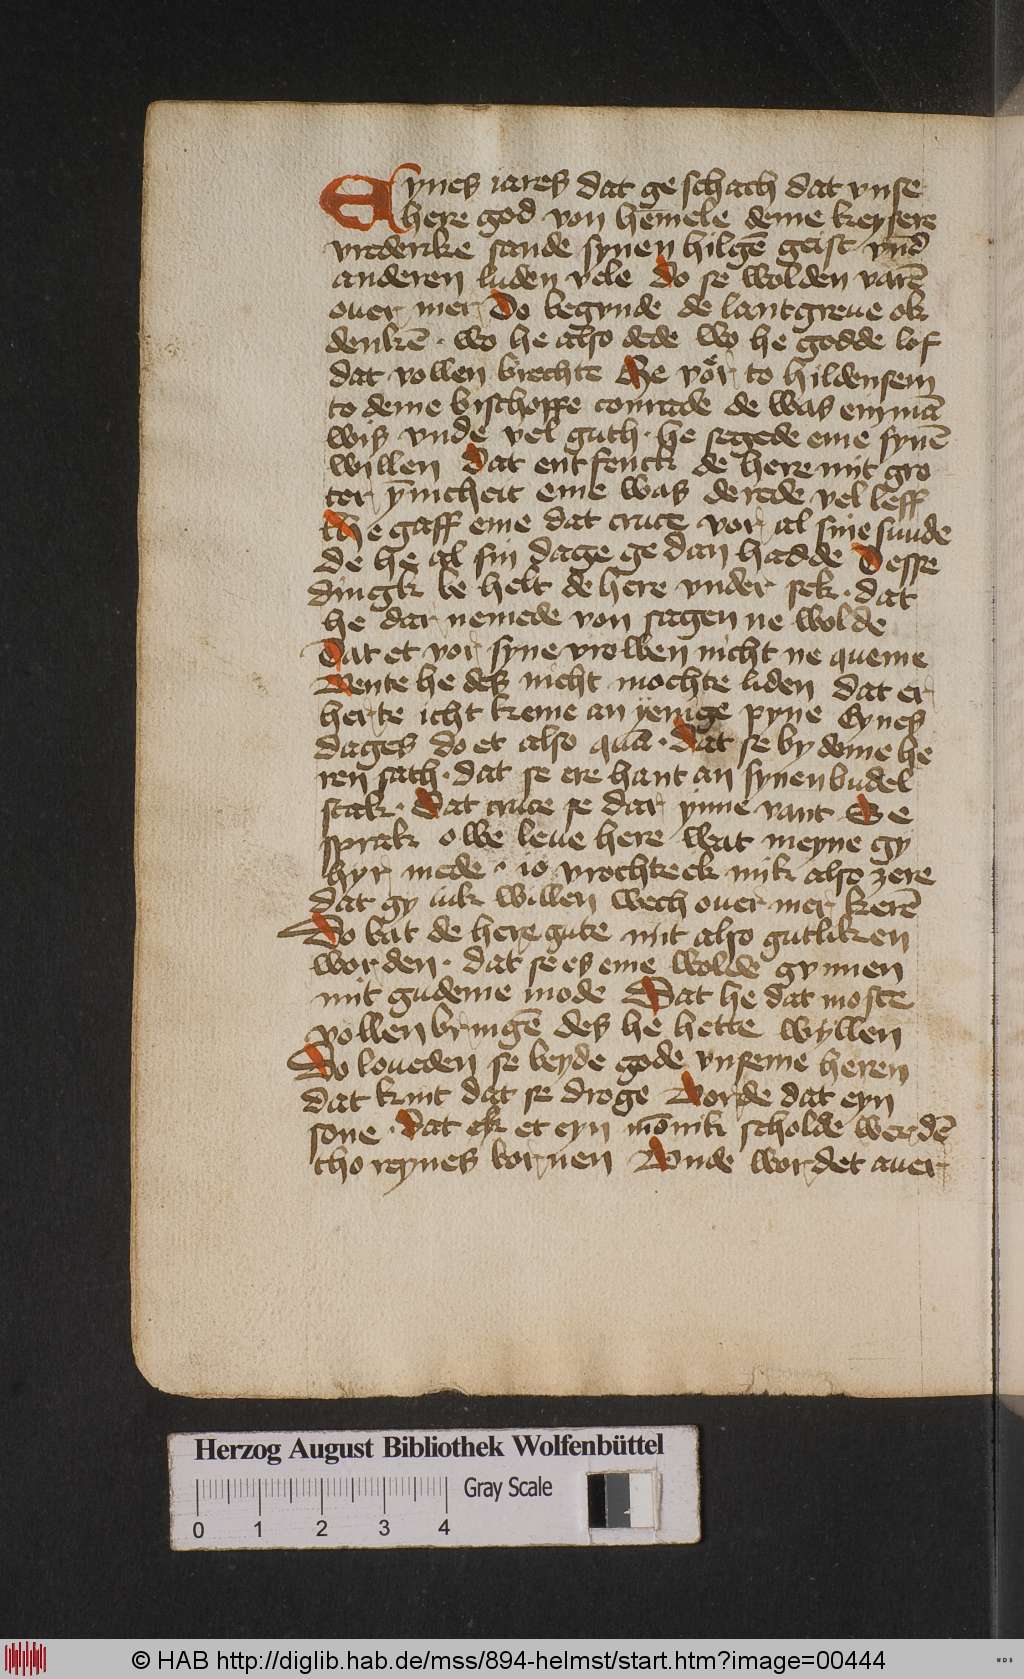 Eynes iares dat ge schach dat vnse
here god von hemele deme keysere
vrederike sande synen hilgē geist vnd̄
anderen luden vele do se wolden varē
ouer mer Do begunde de lantgreue ok
denkē · wo he also dede wo he godde lof
dat vollen brechte He vor to hildensem
to deme bischoppe conrade de was eyn mā
wis vnde vel guth · he segede eme synē
willen dat entfenck de here mit gro
ter ynnicheit eme was de rede vel leff
He gaff eme dat cruce vor al sine sunde
de he al sin dage ge dan hadde Desse
dingk be helt de here vnder sek · dat
he dar nemede von sagen ne wolde
Dat et vor syne vrowen nicht ne queme
Wente he des nicht mochte liden dat er
herte icht kreme an yenige pyne Eynes
dages do et also quā · dat se by deme he
ren sath · dat se ere hant an synen budel
stak · Dat cruce se dar ynne vant Se
sprak o we leue here wat meyne gy
hyr mede · io vrochte ek mik also zere
dat gy iuk willen wech ouer mer kerē
Do bat de here gute mit also gutliken
worden · dat se es eme wolde gynnen
mit gudeme mode Dat he dat moste
vollen bringē des he hette willen
Do loueden se beyde gode vnseme heren
dat kint dat se droge Worde dat eyn
sone · Dat ek et eyn mōnik scholde werdē
tho reynes bornen Vnde wor det auer
Herzog August Bibliothek Wolfenbüttel
Gray Scale
0 1 2 3 4
© HAB http://diglib.hab.de/mss/894-helmst/start.htm?image=00444